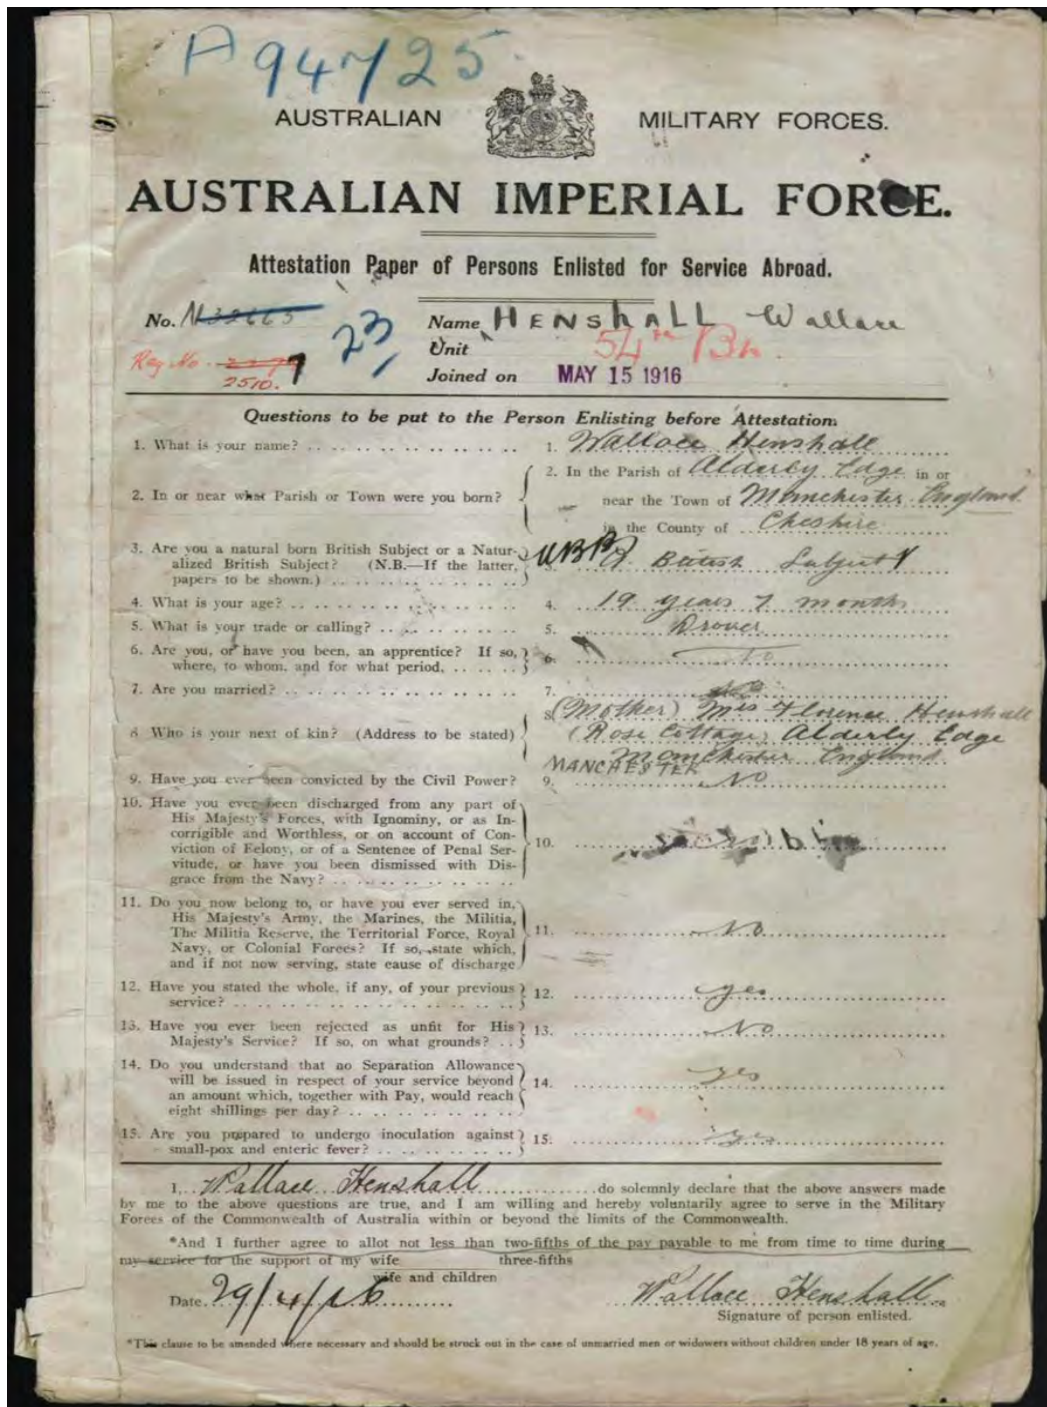 A 94725
AUSTRALIAN MILITARY FORCES.
AUSTRALIAN IMPERIAL FORCE.
Attestation Paper of Persons Enlisted for Service Abroad.
No. N32665 23 Name HENSHALL Wallace
Unit 54th Bn.
Reg No. 2510.
Joined on MAY 15 1916
Questions to be put to the Person Enlisting before Attestation.
1. What is your name? 1. Wallace Henshall
2. In or near what Parish or Town were you born? 2. In the Parish of Alderly Edge in or
near the Town of Manchester England
in the County of Cheshire
3. Are you a natural born British Subject or a Natur-
alized British Subject? (N.B.—If the latter, 3. British Subject
papers to be shown.)
4. What is your age? 4. 19 years 7 months
5. What is your trade or calling? 5. Drover
6. Are you, or have you been, an apprentice? If so, 6. No
where, to whom, and for what period.
7. Are you married? 7. No
8. Who is your next of kin? (Address to be stated) 8. (Mother) Mrs Florence Henshall
(Rose Cottage) Alderly Edge
Manchester England
MANCHESTER
9. Have you ever been convicted by the Civil Power? 9. No
10. Have you ever been discharged from any part of
His Majesty's Forces, with Ignominy, or as In-
corrigible and Worthless, or on account of Con-
viction of Felony, or of a Sentence of Penal Ser- 10.
vitude, or have you been dismissed with Dis-
grace from the Navy?
11. Do you now belong to, or have you ever served in,
His Majesty's Army, the Marines, the Militia,
The Militia Reserve, the Territorial Force, Royal 11. No
Navy, or Colonial Forces? If so, state which,
and if not now serving, state cause of discharge
12. Have you stated the whole, if any, of your previous 12. yes
service?
13. Have you ever been rejected as unfit for His 13. No
Majesty's Service? If so, on what grounds?
14. Do you understand that no Separation Allowance
will be issued in respect of your service beyond 14. yes
an amount which, together with Pay, would reach
eight shillings per day?
15. Are you prepared to undergo inoculation against 15. yes
small-pox and enteric fever?
I, Wallace Henshall do solemnly declare that the above answers made
by me to the above questions are true, and I am willing and hereby voluntarily agree to serve in the Military
Forces of the Commonwealth of Australia within or beyond the limits of the Commonwealth.
*And I further agree to allot not less than two-fifths of the pay payable to me from time to time during
my service for the support of my wife three-fifths
wife and children
Date 29/4/16 Wallace Henshall
Signature of person enlisted.
*This clause to be amended where necessary and should be struck out in the case of unmarried men or widowers without children under 18 years of age.